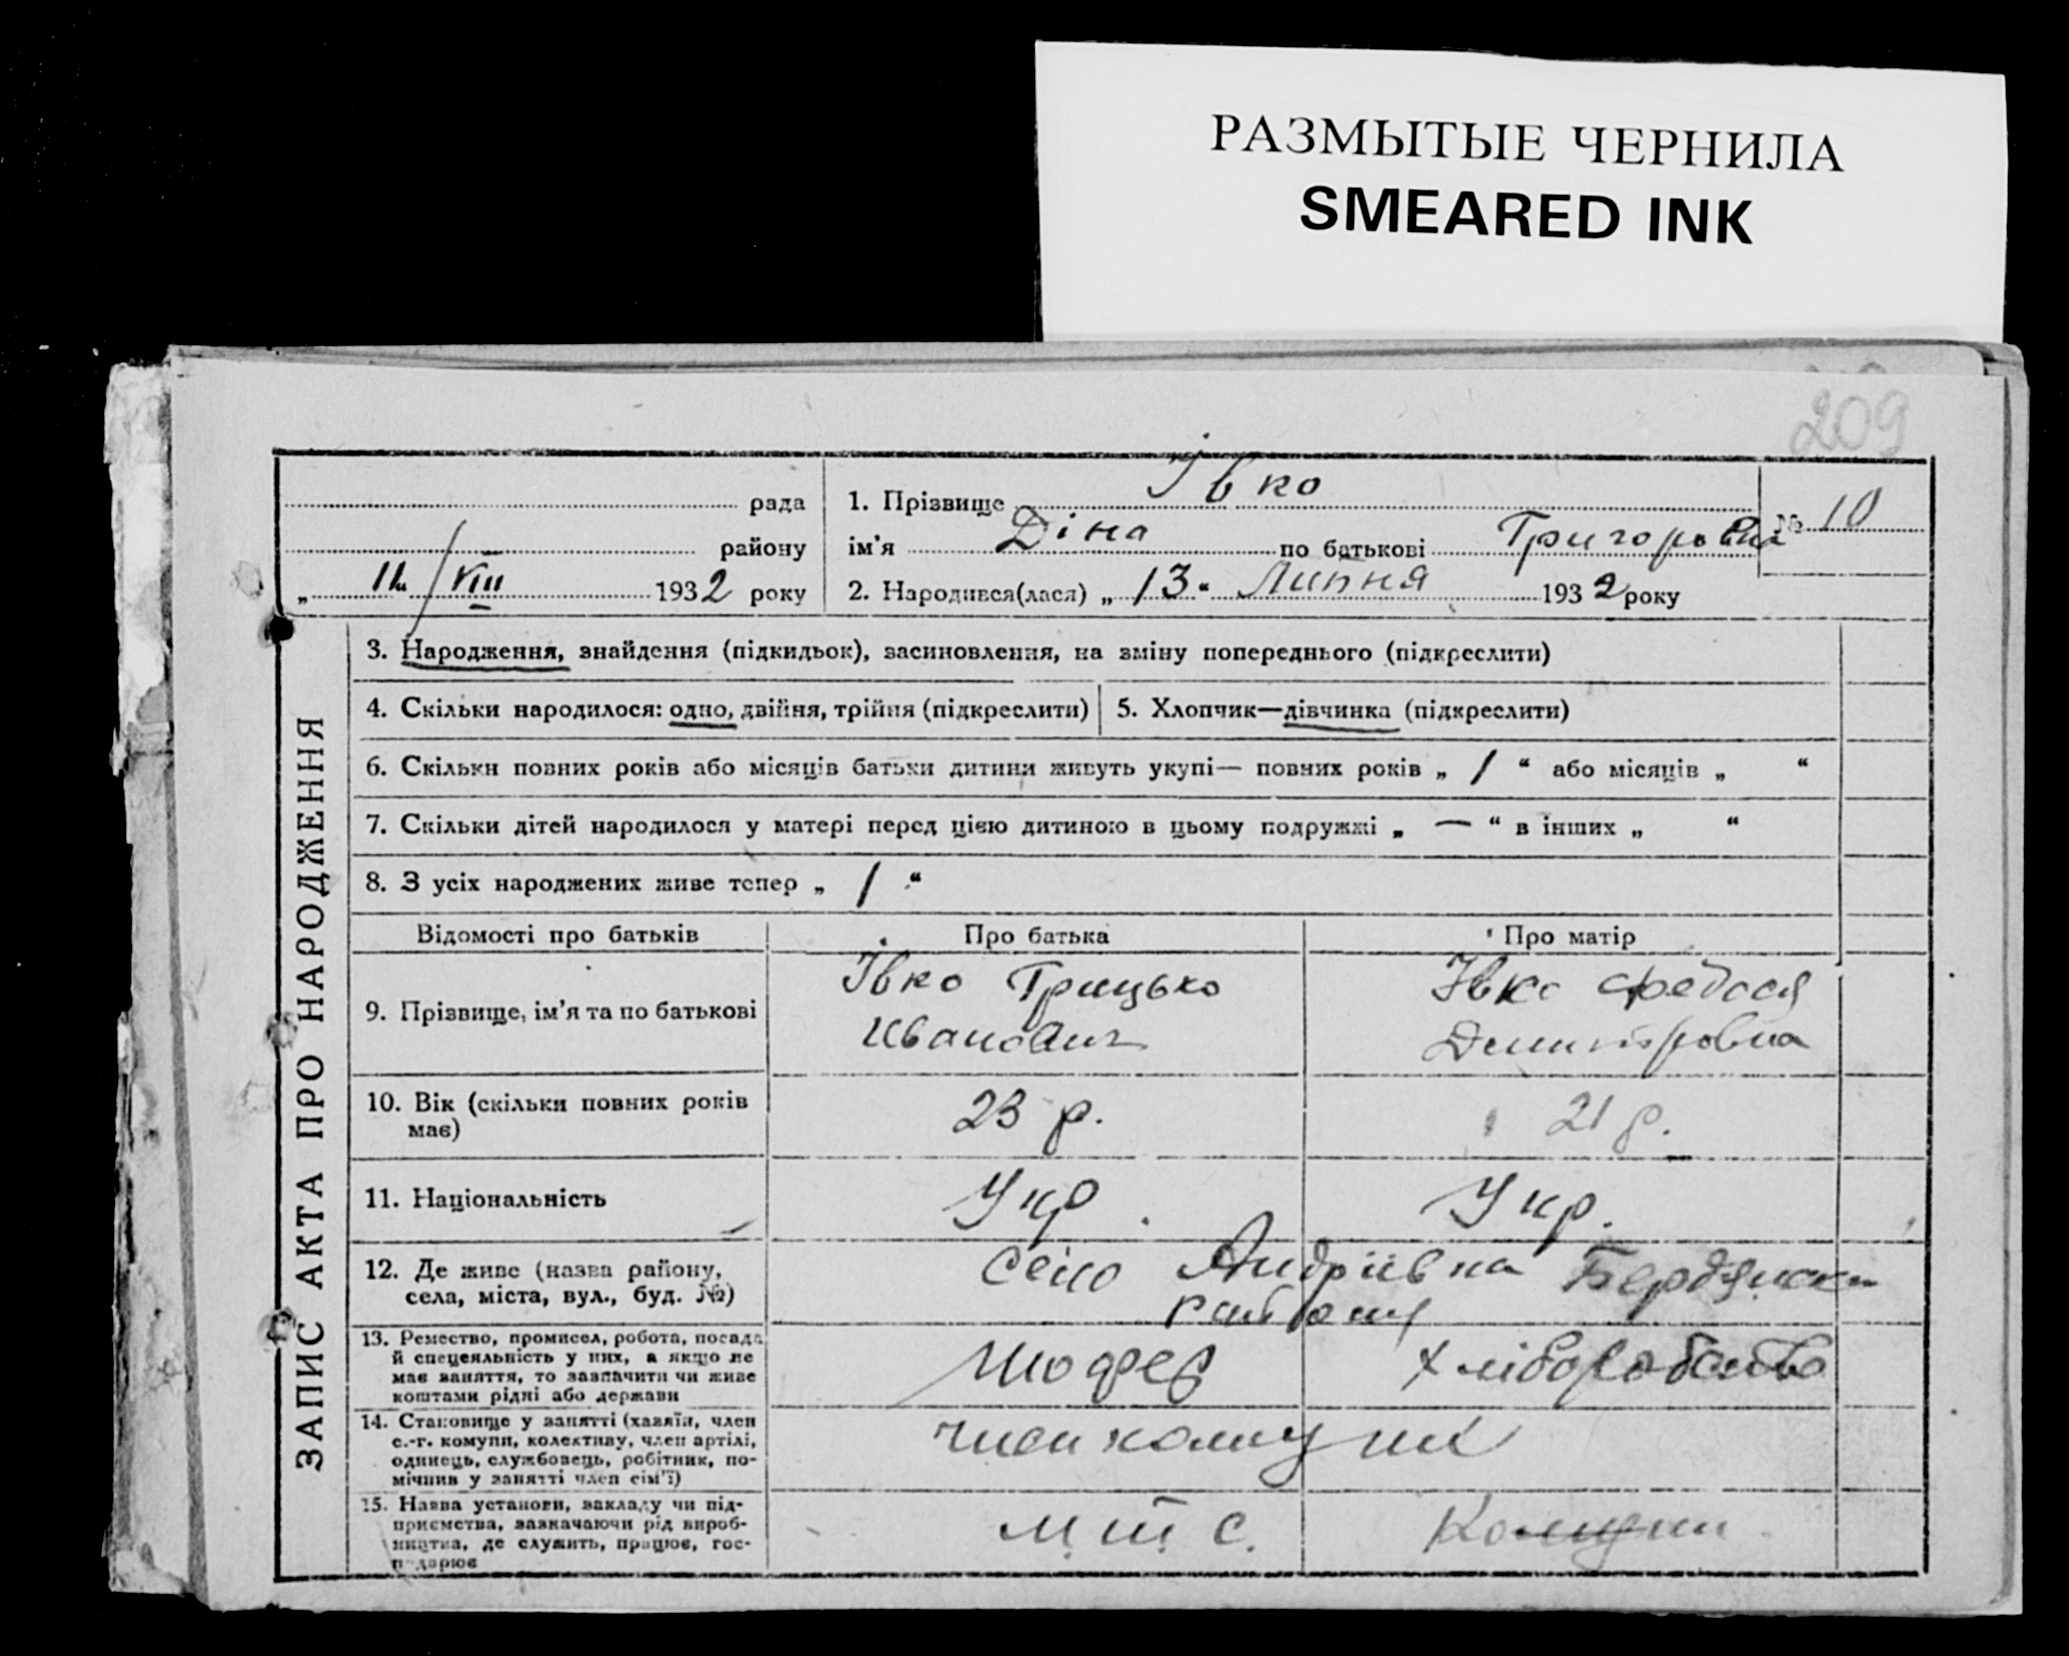 РАЗМЫТЫЕ ЧЕРНИЛА
SMEARED INK
209
ЗАПИС АКТА ПРО НАРОДЖЕННЯ
рада
району
„ 11/VIII 1932 року
1. Прізвище Івко
ім'я Діна по батькові Григоровна
2. Народився(лася) „ 13 “ Липня 1932 року
№ 10
3. Народження, знайдення (підкидьок), засиновлення, на зміну попереднього (підкреслити)
4. Скільки народилося: одно, двійня, трійня (підкреслити)
5. Хлопчик—дівчинка (підкреслити)
6. Скільки повних років або місяців батьки дитини живуть укупі— повних років „ 1 “ або місяців „ “
7. Скільки дітей народилося у матері перед цією дитиною в цьому подружжі „ — “ в інших „ “
8. З усіх народжених живе тепер „ 1 “
Відомості про батьків
Про батька
Про матір
9. Прізвище, ім'я та по батькові
Івко Грицько
Иванович
Івко Федося
Демитровна
10. Вік (скільки повних років
має)
23 р.
21 р.
11. Національність
Укр.
Укр.
12. Де живе (назва району,
села, міста, вул., буд. №)
село Андріївка Бердянськ
району
13. Ремество, промисел, робота, посада
й спецеяльність у них, а якщо не
має заняття, то зазначити чи живе
коштами рідні або держави
Шофер
Хліборобство
14. Становище у занятті (хазяїн, член
с.-г. комуни, колективу, член артілі,
одинець, службовець, робітник, по-
мічник у занятті член сім'ї)
член комуни
15. Назва установи, закладу чи під-
приємства, зазначаючи рід вироб-
ництва, де служить, працює, гос-
подарює
М.Т.С.
Комуни